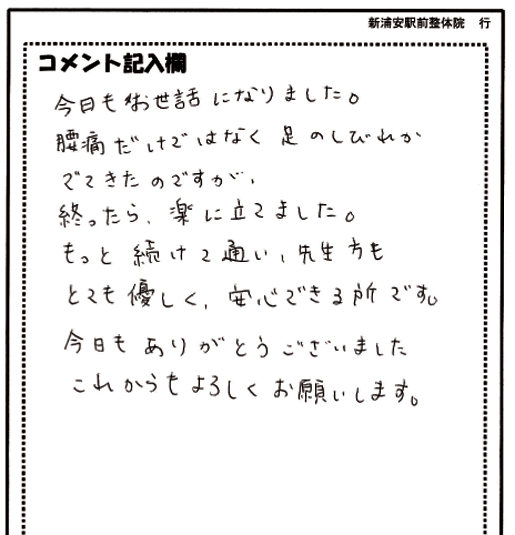 新浦安駅前整体院　行
コメント記入欄
今日も御世話になりました。
腰痛だけではなく足のしびれが
でてきたのですが、
終ったら、楽に立てました。
もっと続けて通い、先生方も
とても優しく、安心できる所です。
今日もありがとうございました
これからもよろしくお願いします。